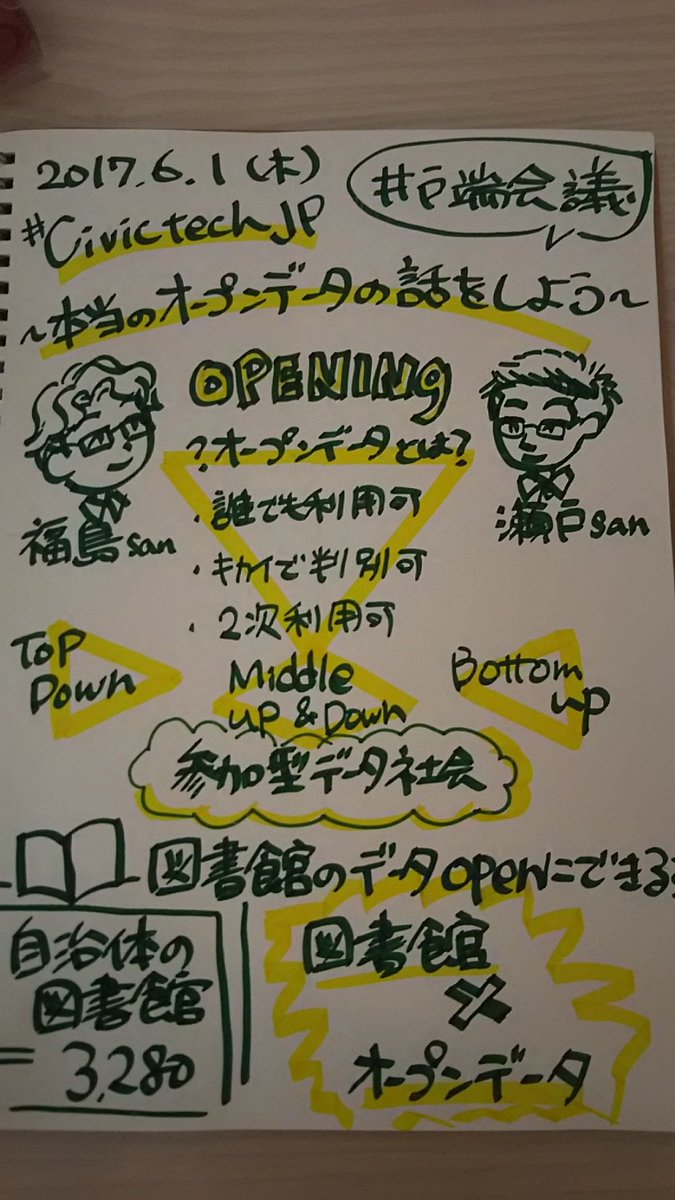 2017.6.1(木)
#戸端会議
#CivictechJP
~本当のオープンデータの話をしよう~
OPENING
?オープンデータとは?
・誰でも利用可
福島san
瀬戸san
・キカイで判別可
・2次利用可
Top
Down
Middle
up & Down
Bottom
up
参加型データ社会
図書館のデータopenにできる
自治体の
図書館
= 3,280
図書館
×
オープンデータ